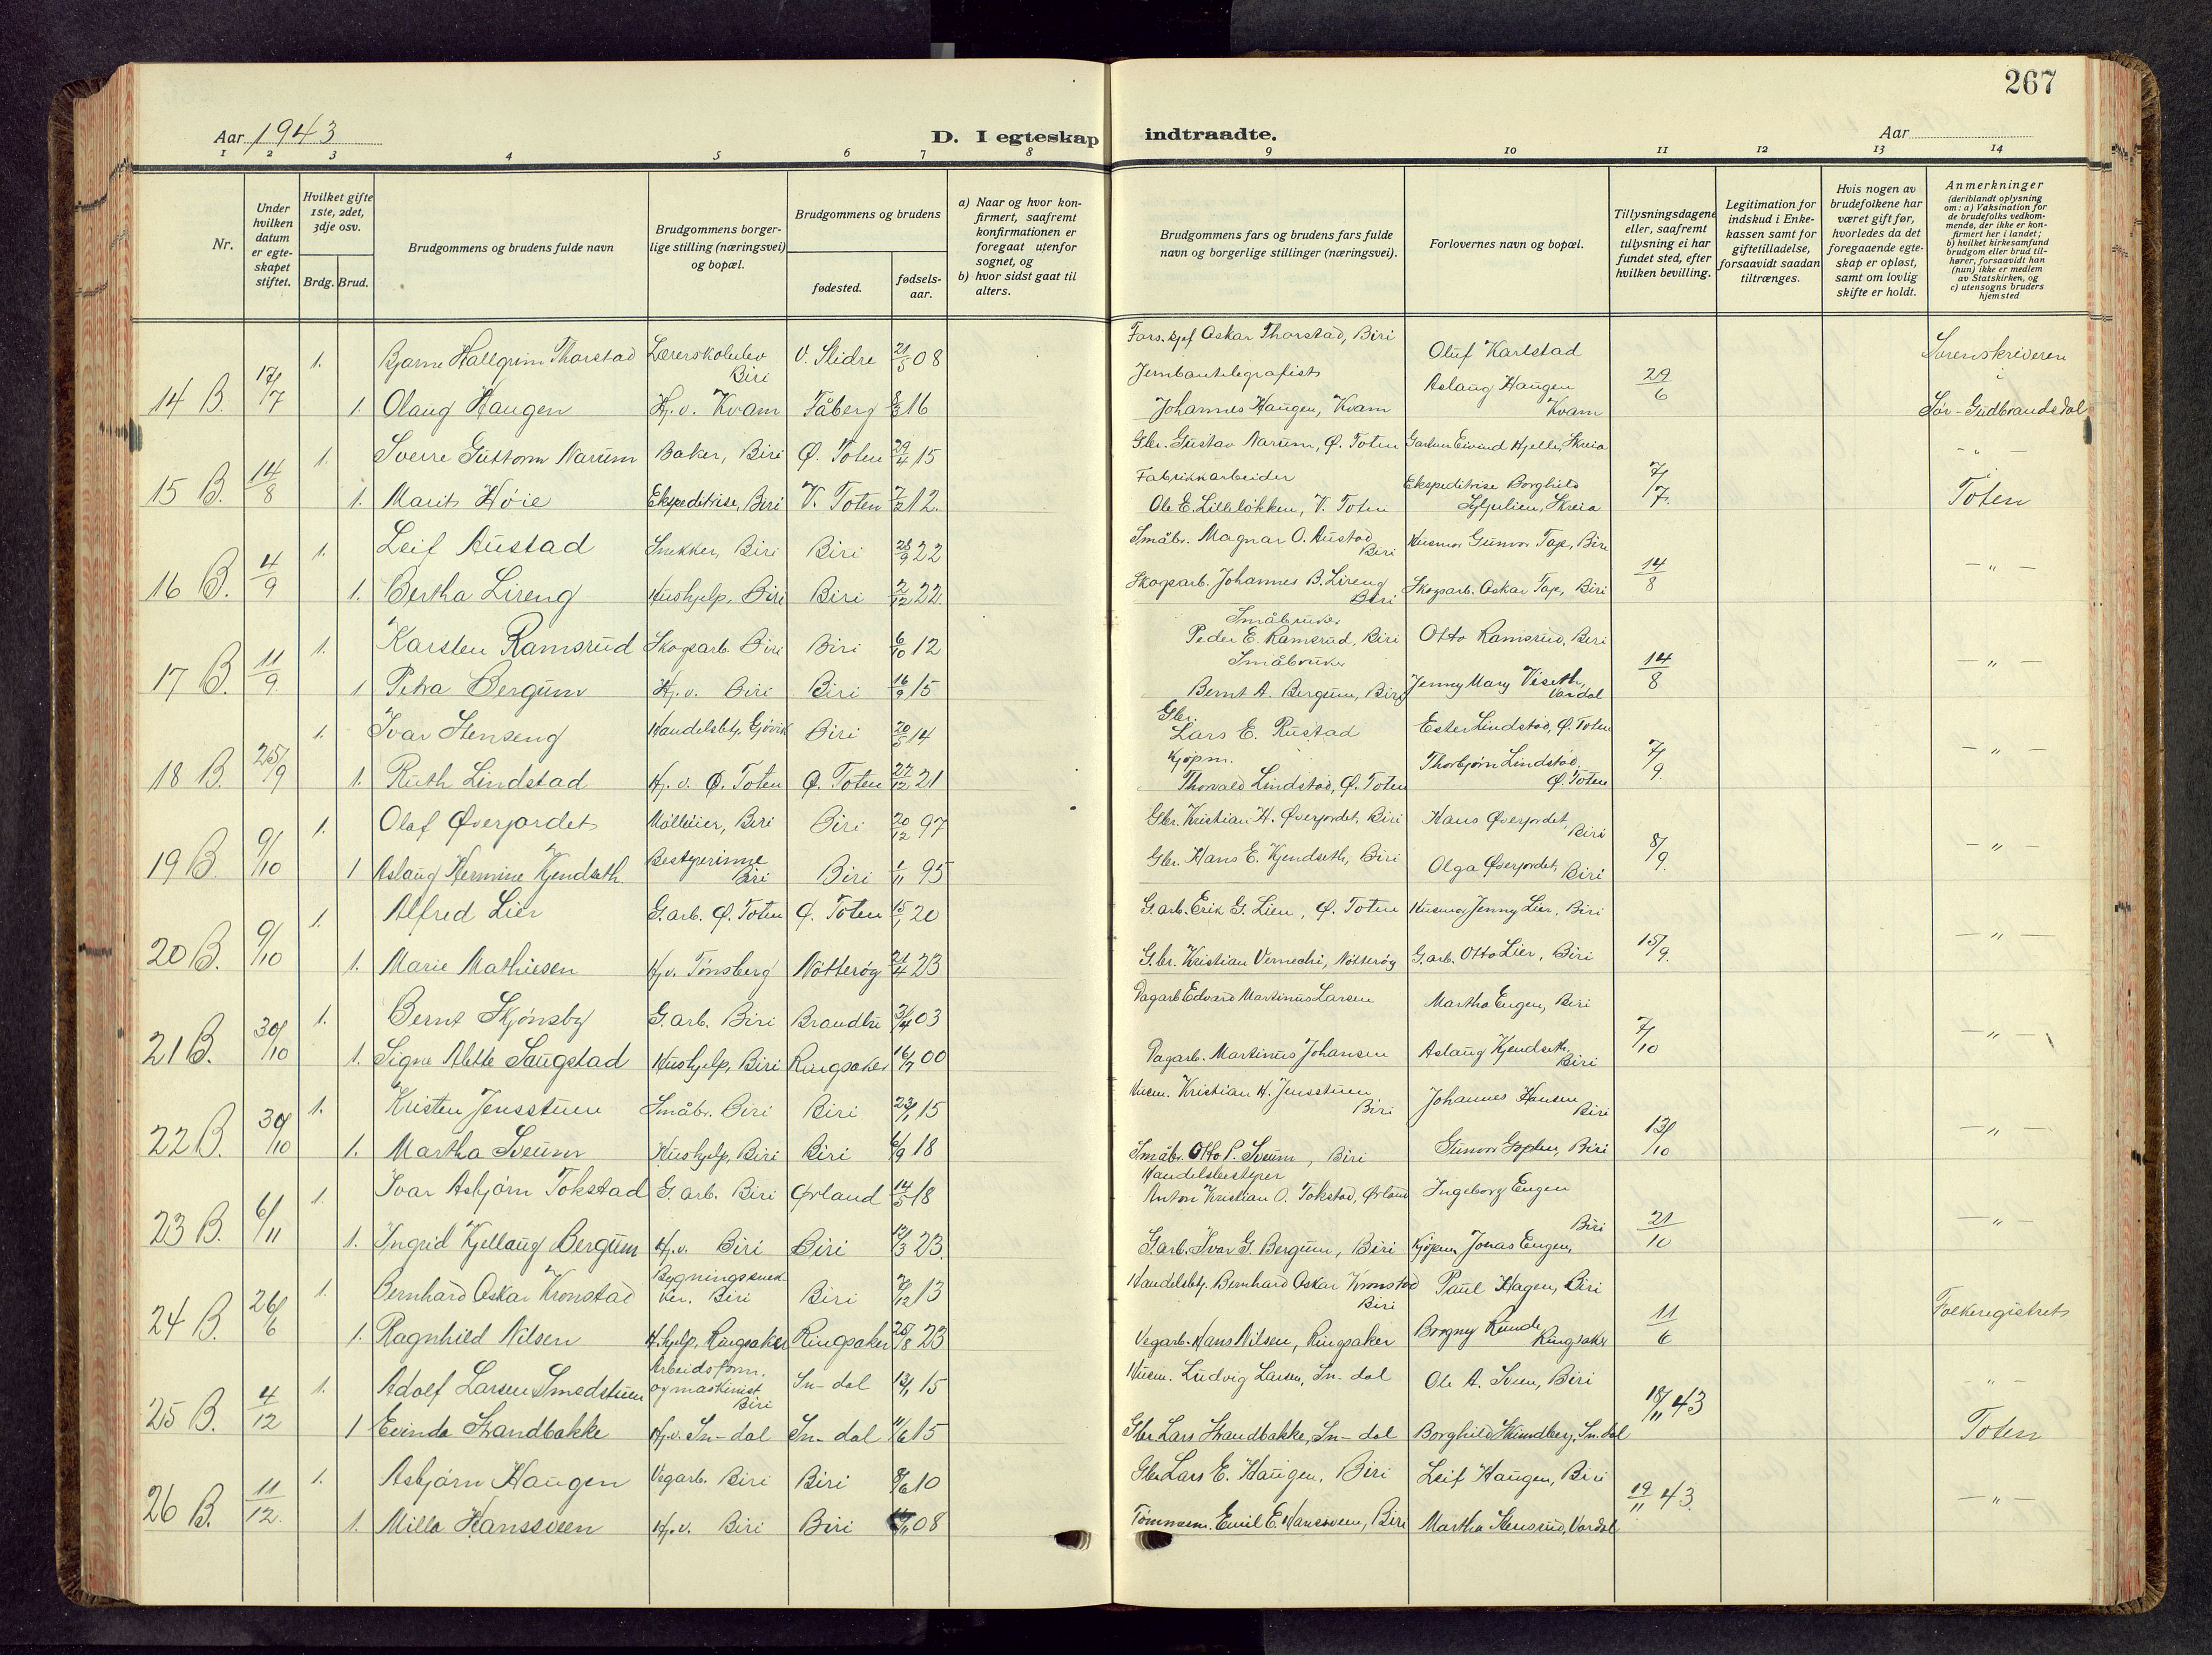 267
Aar 1943
D. I egteskap indtraadte.
Aar
1 2 3 4 5 6 7 8 9 10 11 12 13 14
Nr.
Under hvilken datum er egteskapet stiftet.
Hvilket gifte 1ste, 2det, 3dje osv.
Brdg. Brud.
Brudgommens og brudens fulde navn
Brudgommens borgerlige stilling (næringsvei) og bopæl.
Brudgommens og brudens
fødested.
fødselsaar.
a) Naar og hvor konfirmert, saafremt konfirmationen er foregaat utenfor sognet, og
b) hvor sidst gaat til alters.
Brudgommens fars og brudens fars fulde navn og borgerlige stillinger (næringsvei).
Forlovernes navn og bopæl.
Tillysningsdagene eller, saafremt tillysning ei har fundet sted, efter hvilken bevilling.
Legitimation for indskud i Enkekassen samt for giftetilladelse, forsaavidt saadan tiltrænges.
Hvis nogen av brudefolkene har været gift før, hvorledes da det foregaaende egteskap er opløst, samt om lovlig skifte er holdt.
Anmerkninger (deriblandt oplysning om: a) Vaksination for de brudefolks vedkommende, der ikke er konfirmert her i landet; b) hvilket kirkesamfund brudgom eller brud tilhører, forsaavidt han (hun) ikke er medlem av Statskirken, og c) utensogns bruders hjemsted
14 B. 17/7 1. Bjarne Hallgrim Thorstad Lærerskoleelev Biri V. Slidre 21/5 08 Oskar Thorstad, Biri Oluf Karlstad 29/6 Sorenskriveren i
1. Olaug Haugen Hj. v. Kvam Fåberg 16 Jernbanetelegrafist Johannes Haugen, Kvam Aslaug Haugen Kvam Sør-Gudbrandsdal
15 B. 14/8 1. Sverre Guttorm Narum Baker, Biri Ø. Toten 29/4 15 Gbr. Gustav Narum, Ø. Toten Gartner Eivind Hjelle, Kreia 7/7 - " -
1. Marit Høie Ekspeditrise, Biri V. Toten 12. Fabrikkarbeider Ole E. Lilleløkken, V. Toten Ekspeditrise Borghild Kreia Toten
16 B. 4/9 1. Leif Austad Snekker, Biri Biri 28/9 22 Småbr. Magnar O. Austad Biri Husmor Gunvor Tap, Biri 14/8 - " -
1. Bertha Lireng Hushjelp, Biri Biri 2/12 22. Skogsarb. Johannes B. Lireng Biri Skogsarb. Oskar Tap, Biri
17 B. 11/9 1. Karsten Ramsrud Skogsarb. Biri Biri 6/10 12 Småbruker Peder E. Ramsrud, Biri Otto Ramsrud, Biri 14/8 - " -
1 Petra Bergum Hj. v. Biri Biri 16/9 15 Småbruker Bernt A. Bergum, Biri Jenny Mary Viseth, Vardal
18 B. 25/9 1. Ivar Stenseng Handelsbtj. Gjøvik Biri 20/5 14 Gbr. Lars E. Rustad Ester Lindstad, Ø. Toten 7/9 - " -
1. Ruth Lindstad Hj. v. Ø. Toten Ø. Toten 27/12 21 Kjøpm. Thorvald Lindstad, Ø. Toten Thorbjørn Lindstad, Ø. Toten
19 B. 9/10 1. Olaf Øverjordet Mølleier, Biri Biri 20/12 97 Gbr. Kristian H. Øverjordet, Biri Hans Øverjordet, Biri 8/9. - " -
1 Aslaug Hermine Kjendseth. Bestyrerinne Biri Biri 1/11 95 Gbr. Hans E. Kjendseth, Biri Olga Øverjordet, Biri
20 B. 9/10 1. Alfred Lier G. arb. Ø. Toten Ø. Toten 15/1 20 G. arb. Erik G. Lien, Ø. Toten Husmor Jenny Lier, Biri 15/9. - " -
1. Marie Mathiesen Hj. v. Tønsberg Nøtterøy 21/4 23 G. br. Kristian Nøtterøy G. arb. Otto Lier, Biri
21 B. 30/10 1. Bernt Skjønsby G. arb. Biri Brandbu 3/4 03 Dagarb Edvard Martinus Larsen Martha Engen, Biri 7/10 - " -
1. Signe Alette Saugstad Hushjelp, Biri Ringsaker 16/7 00 Dagarb. Martinus Johansen Aslaug Kjendseth. Biri
22 B. 30/10 1. Kristen Jensstuen Småbr. Biri Biri 23/1 15 Kristian H. Jensstuen Biri Johannes Hansen Biri 13/10 - " -
1. Martha Sveum Hushjelp, Biri Biri 6/9 18 Småbr. Otto P. Sveum, Biri Gunvor Biri
23 B. 6/11 1. Ivar Asbjørn Tokstad G. arb. Biri Ørland 14/5 18 Handelsbestyrer Anton Kristian O. Tokstad, Ørland Ingeborg Engen Biri 21/10 - "
1. Ingrid Kjellaug Bergum Hj. v. Biri Biri 12/3 23. G. arb. Ivar G. Bergum, Biri Kjøpm. Jonas Engen,
24 B. 26/6 1. Bernhard Oskar Kronstad Bygningssnekker. Biri Biri 13 Handelsbtj. Bernhard Oskar Kronstad Biri Paul Hagen, Biri 11/6 Folkeregistret
1. Ragnhild Nilsen H. hjelp, Ringsaker Ringsaker 25/8 23 Vegarb. Hans Nilsen, Ringsaker Borgny Runde, Ringsaker
25 B. 4/12 1. Adolf Larsen Smedstuen Arbeidsform. og maskinist, Biri Sn-dal 13/1 15 Ludvig Larsen, Sn-dal Ole A. Sveen, Biri 18/11 43 - " -
1 Evinda Strandbakke Hj. v. Sn-dal Sn-dal 15 Gbr. Lars Strandbakke, Sn-dal Borghild Sn. dal Toten
26 B. 11/12. 1. Asbjørn Haugen Vegarb. Biri Biri 10 Gbr Lars E. Haugen, Biri Leif Haugen, Biri 19/11 43. - " -
1. Milla Hanssveen Hj. v. Biri Biri 08 Tømmerm. Emil E. Hanssveen, Biri Martha Vardal